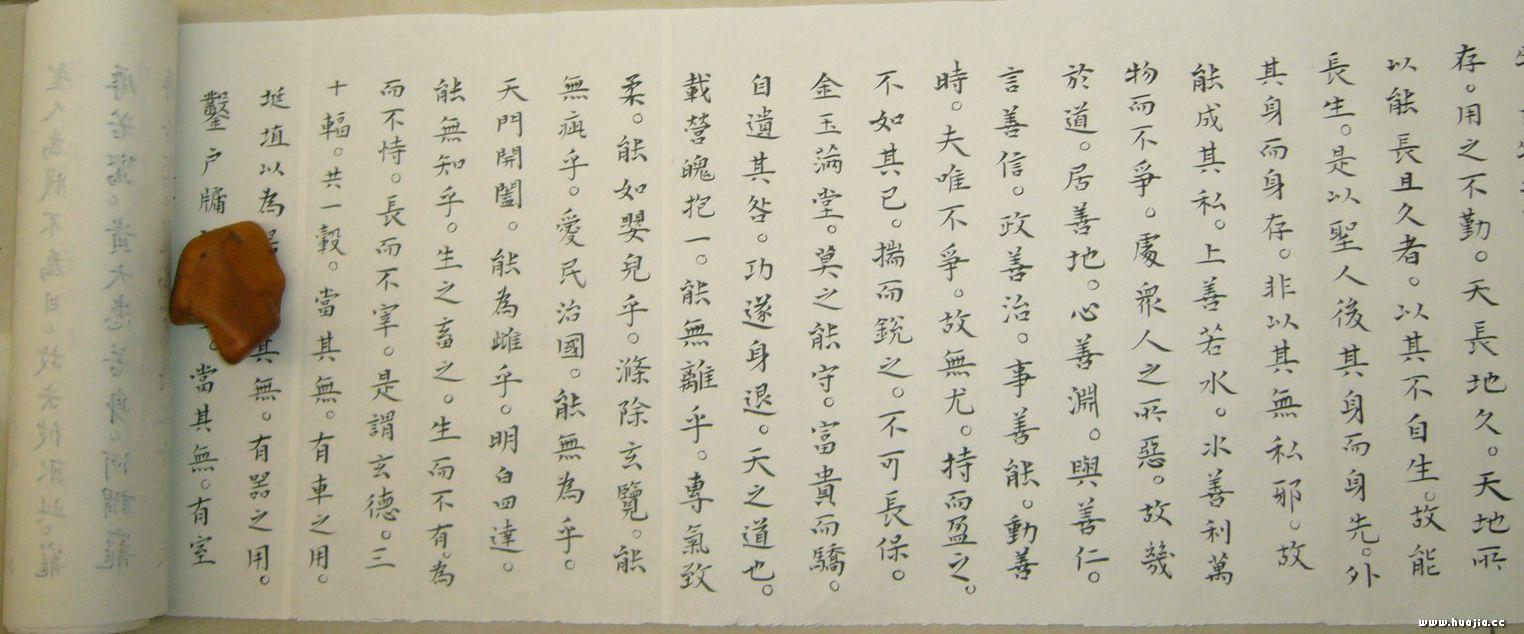 存。用之不勤。天長地久。天地所
以能長且久者。以其不自生。故能
長生。是以聖人後其身而身先。外
其身而身存。非以其無私邪。故
能成其私。上善若水。水善利萬
物而不爭。處衆人之所惡。故幾
於道。居善地。心善淵。與善仁。
言善信。政善治。事善能。動善
時。夫唯不爭。故無尤。持而盈之。
不如其已。揣而銳之。不可長保。
金玉滿堂。莫之能守。富貴而驕。
自遺其咎。功遂身退。天之道也。
載營魄抱一。能無離乎。專氣致
柔。能如嬰兒乎。滌除玄覽。能
無疵乎。愛民治國。能無為乎。
天門開闔。能為雌乎。明白四達。
能無知乎。生之畜之。生而不有。為
而不恃。長而不宰。是謂玄德。三
十輻。共一轂。當其無。有車之用。
埏埴以為 其無。有器之用。
鑿户牖 。當其無。有室
www.huajia.cc